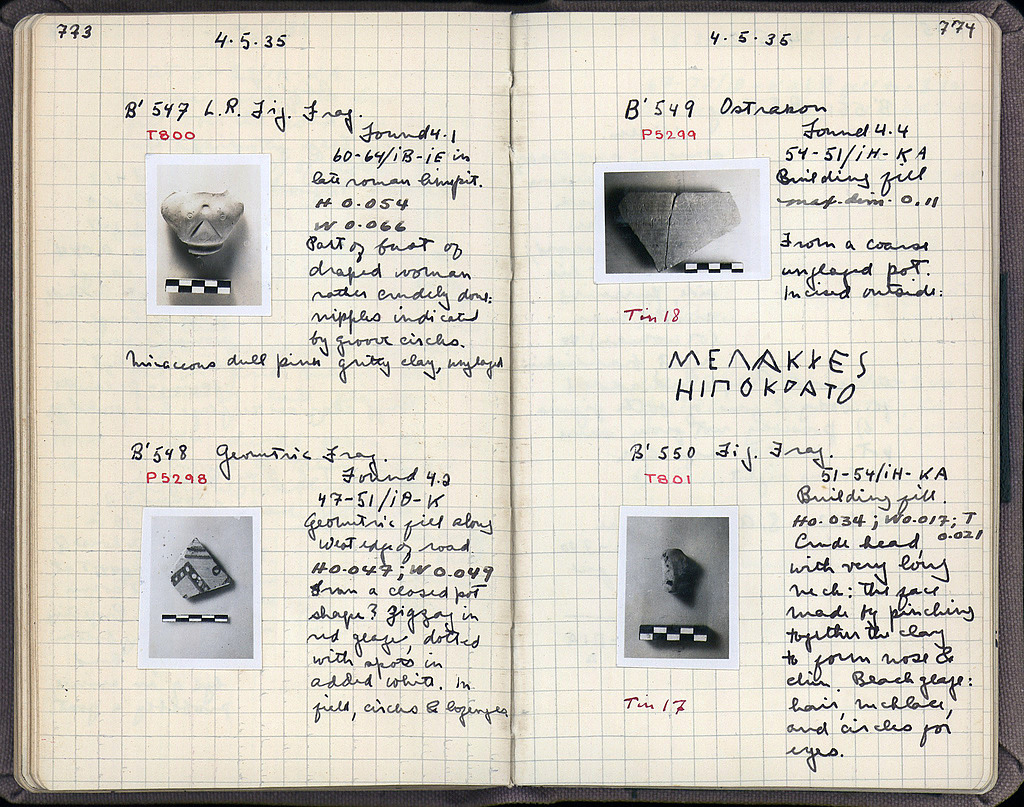 773
4.5.35
B' 547 L.R. Fig. Frag.
T800
Found 4.1
60-64/ΙΒ-ΙΕ in
late roman limepit.
H 0.054
W 0.066
Part of bust of
draped woman
rather crudely done:
nipples indicated
by groove circles.
Micaceous dull pink gritty clay, unglazed
B' 548 Geometric Frag.
P5298
Found 4.2
47-51/ΙΘ-Κ
Geometric fill along
West edge of road.
H 0.047; W 0.049
From a closed pot
shape? Zigzag in
red glaze, dotted
with spots in
added white. In
field, circles & lozenges
774
4.5.35
B' 549 Ostrakon
P5299
Found 4.4
54-51/ΙΗ-ΚΑ
Building fill
max. dim. 0.11
From a coarse
unglazed pot.
Incised outside:
Tin 18
ΜΕΛΑΚΧΕS
ΗΙΠΟΚΡΑΤΟ
B' 550 Fig. Frag.
T801
51-54/ΙΗ-ΚΑ
Building fill.
H 0.034; W 0.017; T
0.021
Crude head,
with very long
neck: the face
made by pinching
together the clay
to form nose &
chin. Black glaze:
hair, necklace,
and circles for
eyes.
Tin 17